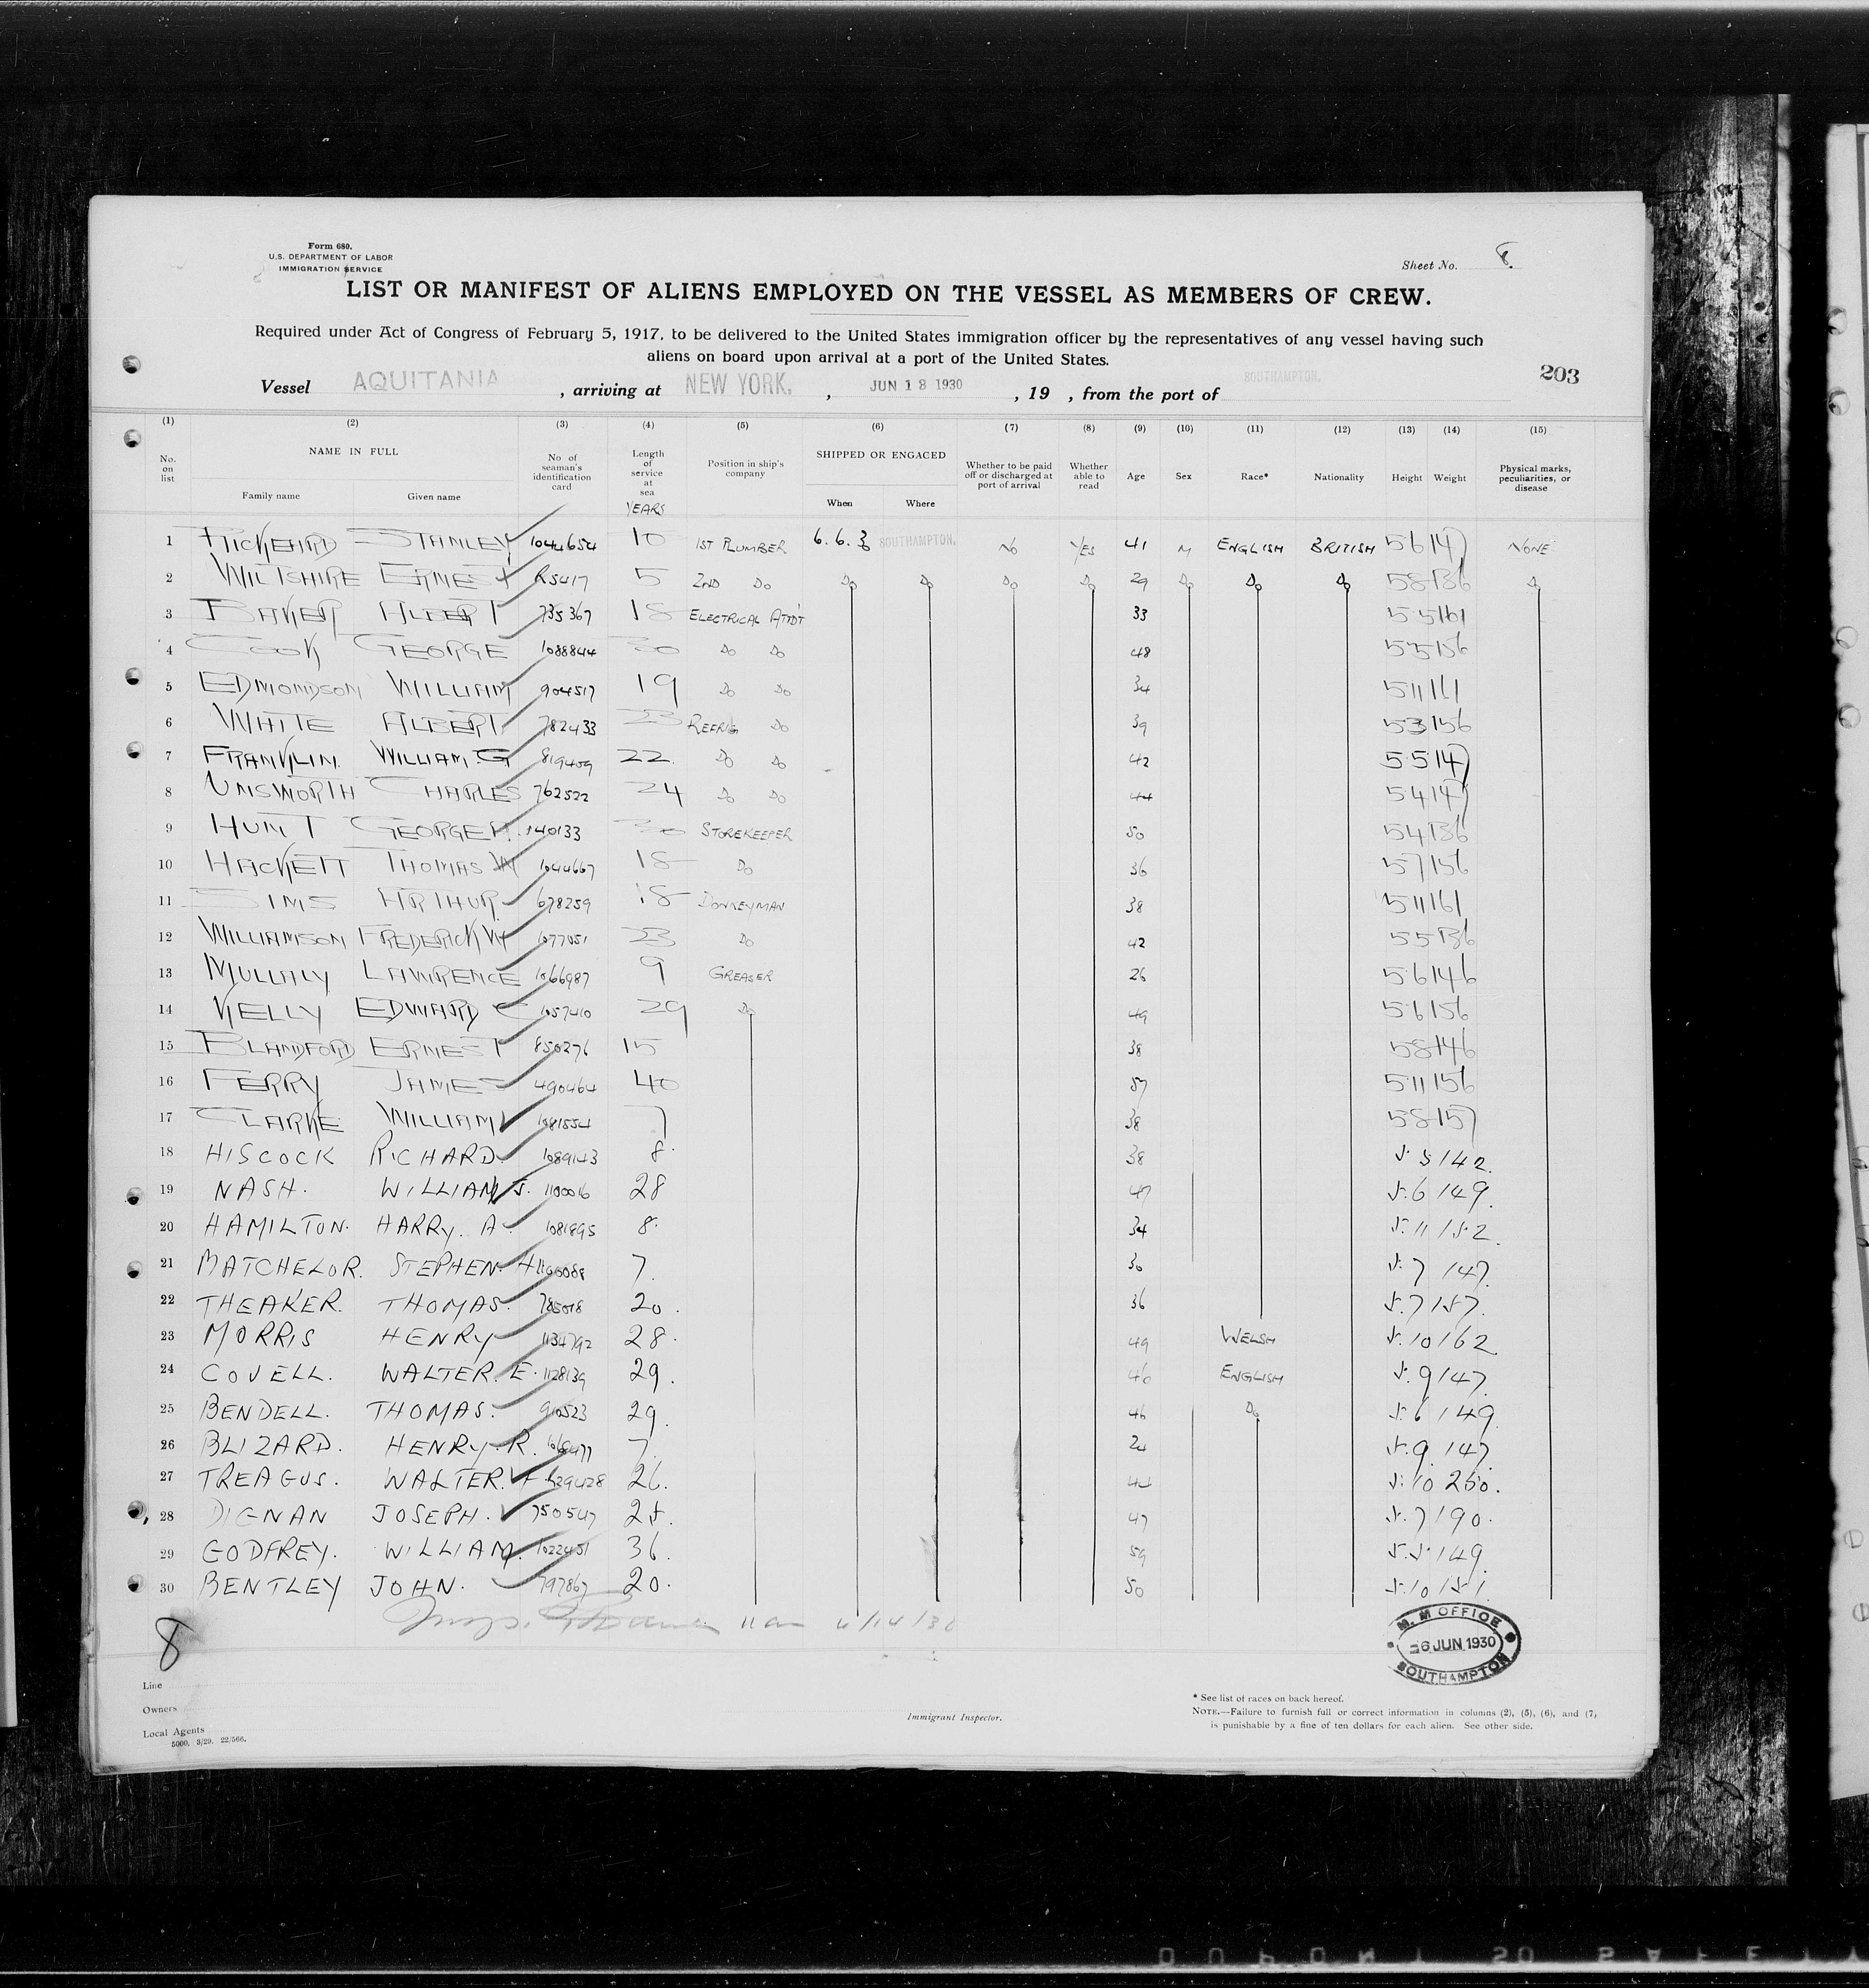 Form 680.
U.S. DEPARTMENT OF LABOR
IMMIGRATION SERVICE
Sheet No. 8.
LIST OR MANIFEST OF ALIENS EMPLOYED ON THE VESSEL AS MEMBERS OF CREW.
Required under Act of Congress of February 5, 1917, to be delivered to the United States immigration officer by the representatives of any vessel having such
aliens on board upon arrival at a port of the United States.
203
Vessel AQUITANIA , arriving at NEW YORK. , JUN 18 1930 , 19 , from the port of SOUTHAMPTON.
(1) (2) (3) (4) (5) (6) (7) (8) (9) (10) (11) (12) (13) (14) (15)
No. on list NAME IN FULL Family name Given name No of seaman's identification card Length of service at sea YEARS Position in ship's company SHIPPED OR ENGAGED When Where Whether to be paid off or discharged at port of arrival Whether able to read Age Sex Race* Nationality Height Weight Physical marks, peculiarities, or disease
1 RICKEARD STANLEY 1044654 10 1ST PLUMBER 6.6.3 SOUTHAMPTON. NO YES 41 M ENGLISH BRITISH 5 6 147 NONE
2 WILTSHIRE ERNEST 5 2ND DO DO DO DO DO 29 DO DO DO 5 8 136 DO
3 BAKER ALBERT 735367 18 ELECTRICAL ATTDT 33 5 5 161
4 COOK GEORGE 1088844 30 DO DO 48 5 5 156
5 EDMONDSON WILLIAM 904517 19 DO DO 34 5 11 161
6 WHITE ALBERT 782433 23 REFRIG DO 39 5 3 156
7 FRANKLIN. WILLIAM.G 819409 22. DO DO 42 5 5 147
8 UNSWORTH CHARLES 762522 24 DO DO 44 5 4 147
9 HUNT GEORGE H. 140133 30 STOREKEEPER 50 5 4 136
10 HACKETT THOMAS W 1044667 18 DO 36 5 7 156
11 SIMS ARTHUR 678259 18 DONKEYMAN 38 5 11 161
12 WILLIAMSON FREDERICK W 1077051 23 DO 42 5 5 136
13 MULLALY LAWRENCE 1066987 9 GREASER 26 5 6 146
14 KELLY EDWARD C 1057410 29 DO 49 5 6 156
15 BLANDFORD ERNEST 850276 15 38 5 8 146
16 FERRY JAMES 490464 40 57 5 11 156
17 CLARKE WILLIAM 1081554 7 38 5 8 157
18 HISCOCK RICHARD. 1089143 8. 38 5. 5 142.
19 NASH. WILLIAM J. 1100016 28 47 5.6 149.
20 HAMILTON. HARRY. A. 1081895 8. 34 5.11 152.
21 MATCHELOR. STEPHEN. H 7. 30 5.7 147.
22 THEAKER. THOMAS. 785018 20. 36 5.7 157.
23 MORRIS HENRY 1134792 28. 49 WELSH 5.10 162
24 COVELL. WALTER. E. 1128139 29. 46 ENGLISH 5.9 147.
25 BENDELL. THOMAS. 910523 29. 46 DO 5.6 149.
26 BLIZARD. HENRY. R. 7. 24 5.9 147.
27 TREAGUS. WALTER. 26. 44 5.10 250.
28 DIGNAN JOSEPH. 750547 25. 47 5.7 190.
29 GODFREY. WILLIAM. 1022451 36. 59 5.5 149.
30 BENTLEY JOHN. 797867 20. 50 5.10 151.
11 am 6/14/30
8
M. M OFFICE
6 JUN 1930
SOUTHAMPTON
Line
Owners
Local Agents
5000. 3/29. 22/566.
Immigrant Inspector.
* See list of races on back hereof.
NOTE.—Failure to furnish full or correct information in columns (2), (5), (6), and (7)
is punishable by a fine of ten dollars for each alien. See other side.